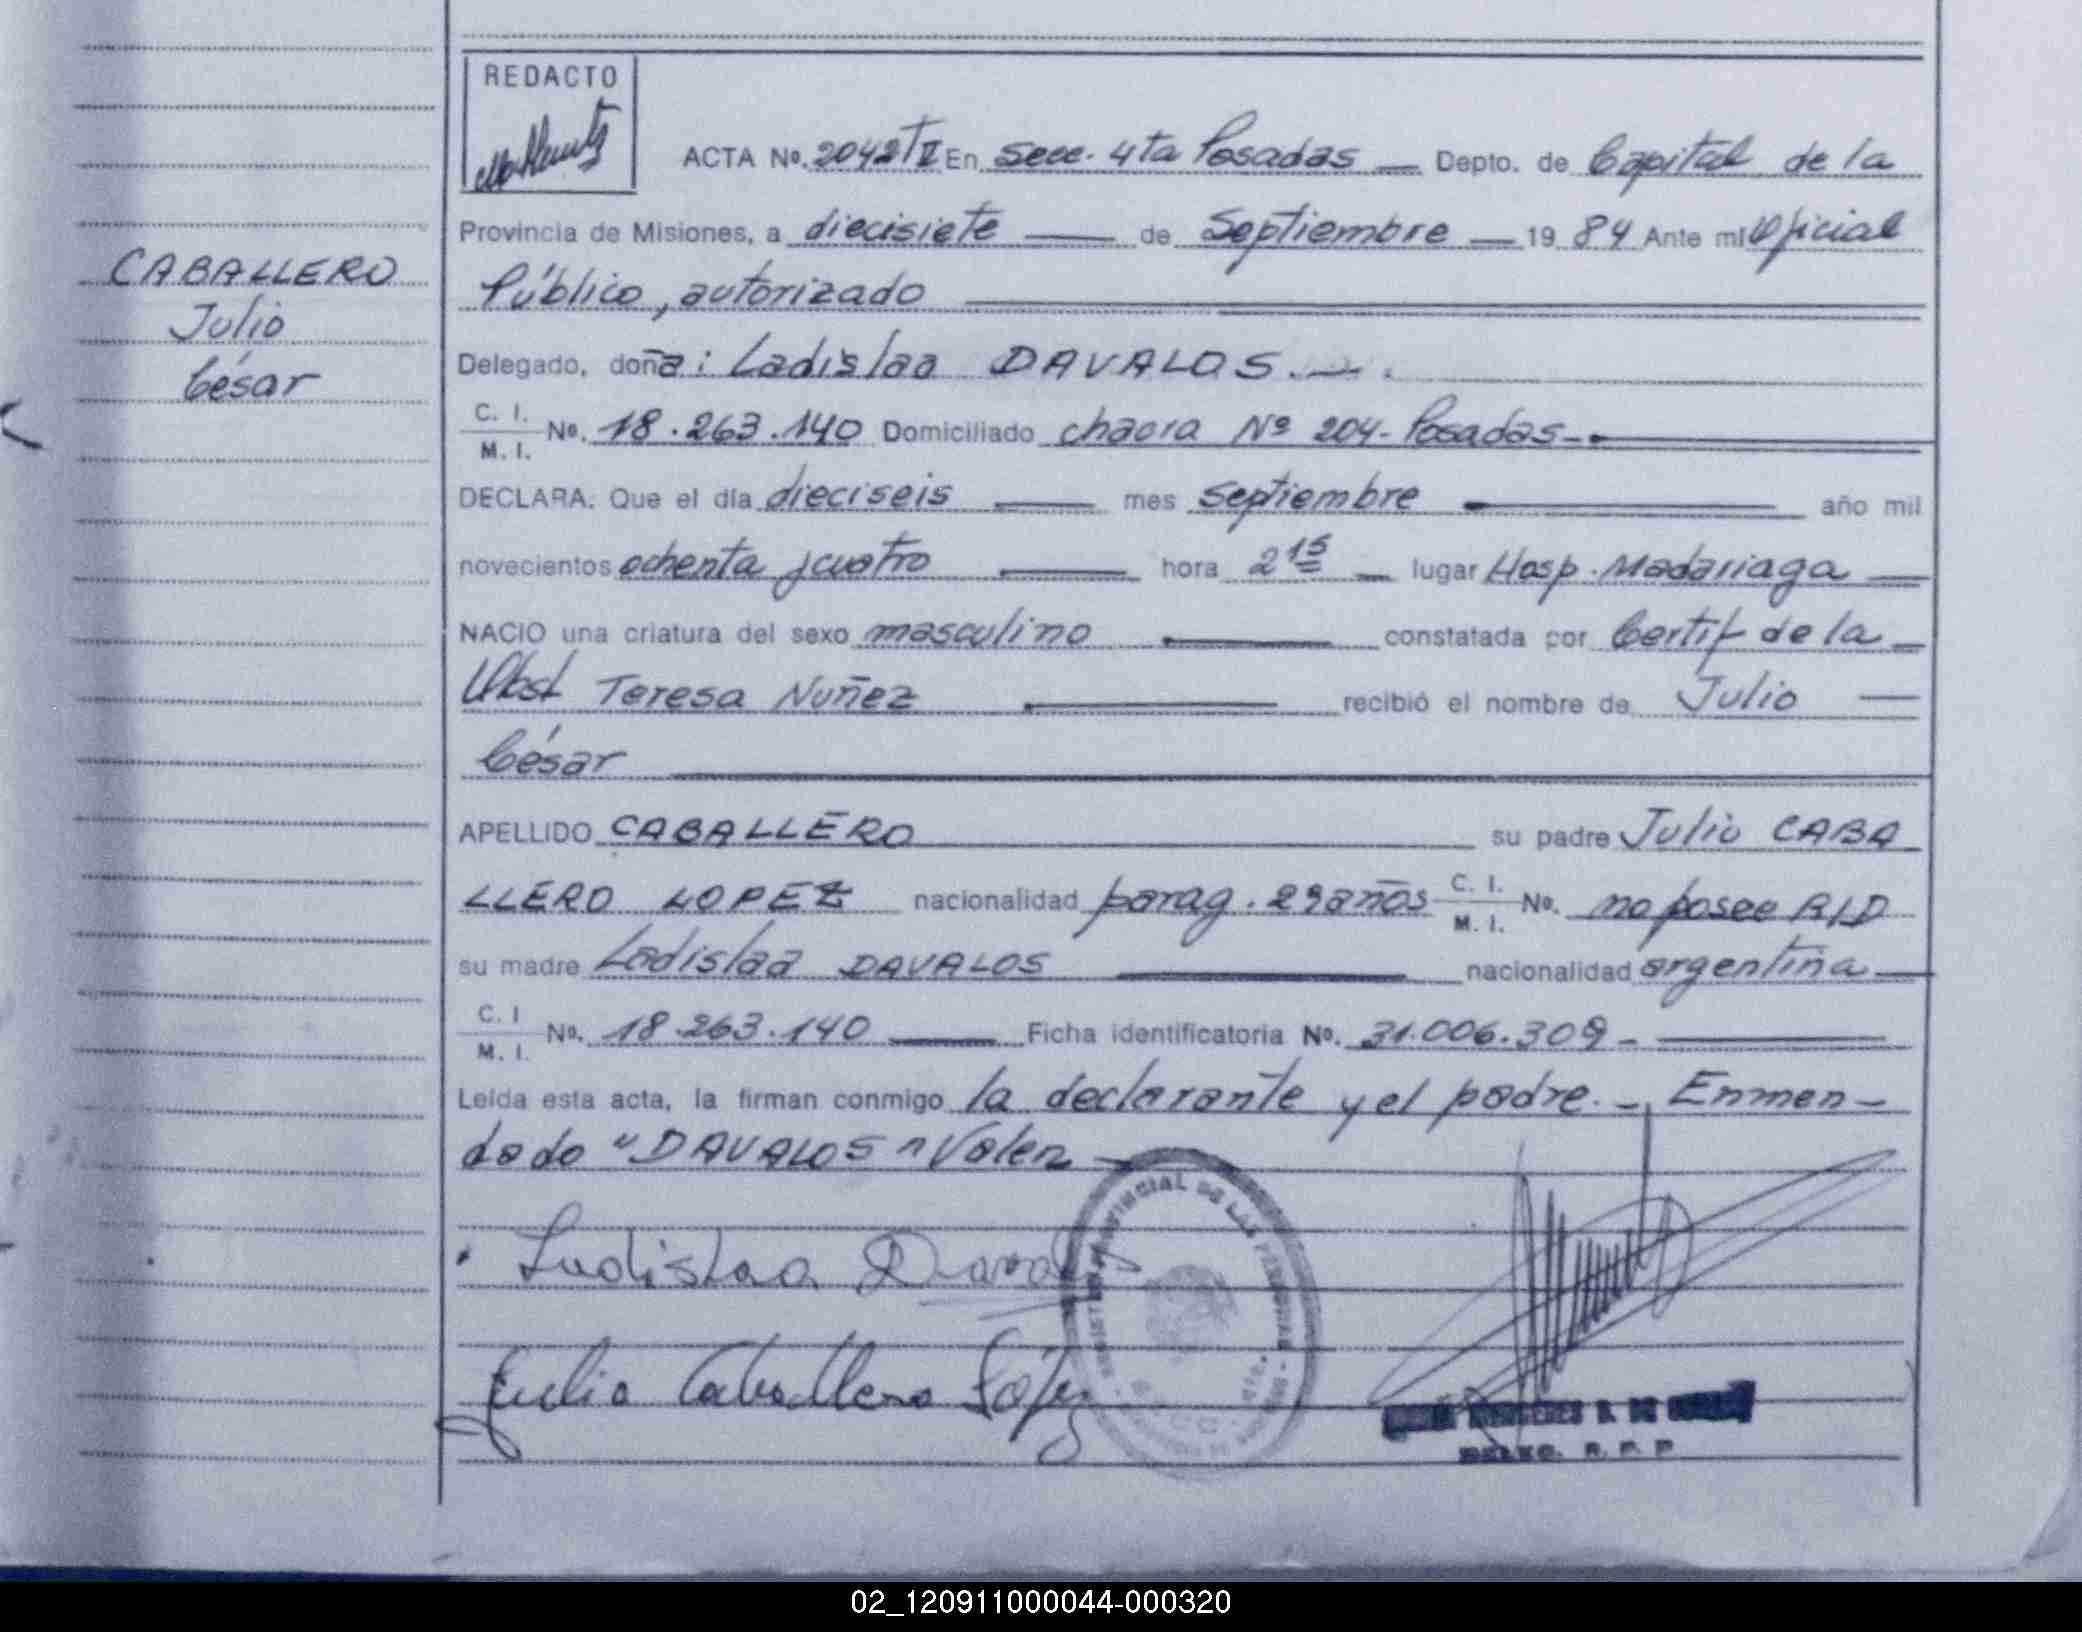 REDACTO
ACTA No. 2042 TII En Secc. 4ta Posadas — Depto. de Capital de la
Provincia de Misiones, a diecisiete — de Septiembre — 19 84 Ante mi Oficial
Público, autorizado
CABALLERO
Julio
César
Delegado, doña: Ladislaa DAVALOS.—.
C. I.
M. I.
No. 18.263.140 Domiciliado chacra Nº 204- Posadas-.
DECLARA: Que el día dieciseis — mes septiembre — año mil
novecientos ochenta y cuatro — hora 2 15 — lugar Hosp. Madariaga —
NACIO una criatura del sexo masculino — constatada por Certif de la —
Obst Teresa Nuñez — recibió el nombre de Julio —
César
APELLIDO CABALLERO su padre Julio CABA
LLERO LOPEZ nacionalidad parag. 29 años C. I. M. I. No. no posee
su madre Ladislaa DAVALOS — nacionalidad argentina —
C. I
M. I.
No. 18.263.140 — Ficha identificatoria No. 31.006.309 -
Leída esta acta, la firman conmigo la declarante y el padre. - Enmen-
dado "DAVALOS" Valen
Ladislaa
Julio Caballero López
PROVINCIAL DE LAS PERSONAS
DE
R. P. P
02_120911000044-000320